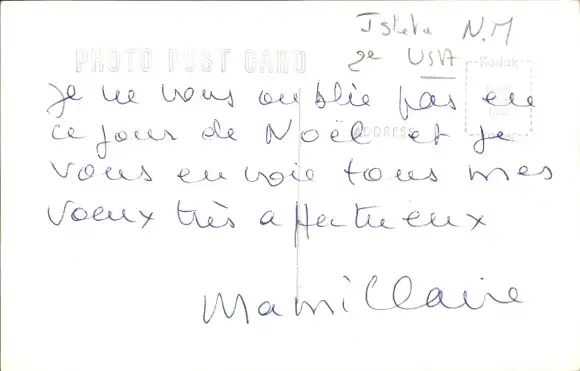 Isleta N.M
USA
PHOTO POST CARD
Kodak
ADDRESS
Je ne vous oublie pas en
ce jour de Noël et je
vous envoie tous mes
voeux très affectueux
Mami Claire